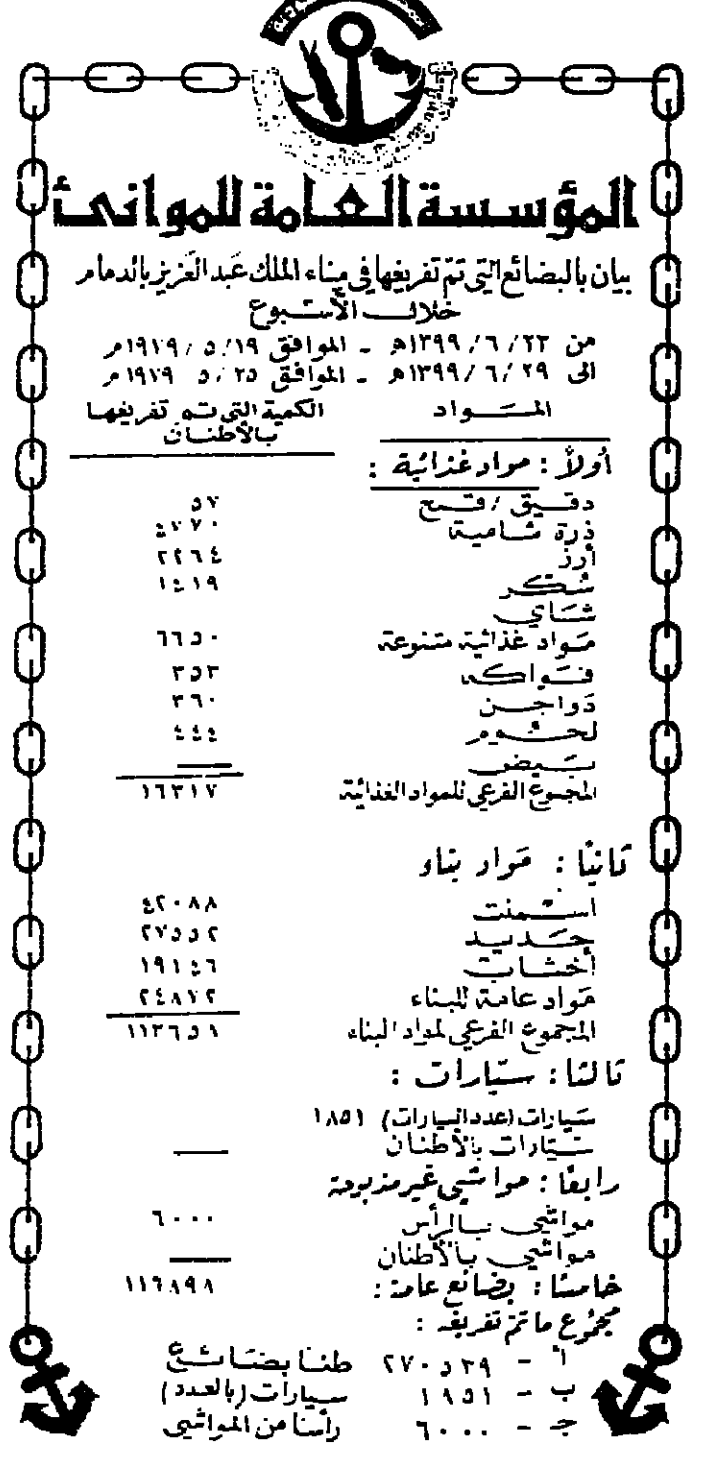 المؤسسة العامة للموانئ
بيان بالبضائع التي تمّ تفريغها في ميناء الملك عبد العزيز بالدمام
خلال الأسبوع
من ٢٣ / ٦ / ١٣٩٩هـ - الموافق ١٩ / ٥ / ١٩٧٩م
الى ٢٩ / ٦ / ١٣٩٩هـ - الموافق ٢٥ / ٥ / ١٩٧٩م
المـــواد الكمية التي تم تفريغها بالأطنان
أولاً : مواد غذائية :
دقيق / قمح ٥٧
ذرة شامية ٤٧٧٠
أرز ٢٢٦٤
سكر ١٤١٩
شاي
مواد غذائية متنوعة ٦٦٥٠
فواكه ٣٥٣
دواجن ٣٦٠
لحوم ٤٤٤
بيض —
المجموع الفرعي للمواد الغذائية ١٦٣١٧
ثانياً : مواد بناء
اسمنت ٤٢٠٨٨
حديد ٢٧٥٥٢
أخشاب ١٩١٤٦
مواد عامة للبناء ٢٤٨٧٢
المجموع الفرعي لمواد البناء ١١٣٦٥٨
ثالثا : سيارات :
سيارات (عدد السيارات) ١٨٥١
سيارات بالأطنان —
رابعاً : مواشي غير مذبوحة
مواشي بالرأس ٦٠٠٠
مواشي بالأطنان —
خامسًا : بضائع عامة : ١١٦٨٩٨
مجموع ما تم تفريغه :
أ - ٢٧٠٥٣٩ طنا بضائع
ب - ١٩٥١ سيارات (بالعدد)
جـ - ٦٠٠٠ رأسا من المواشي